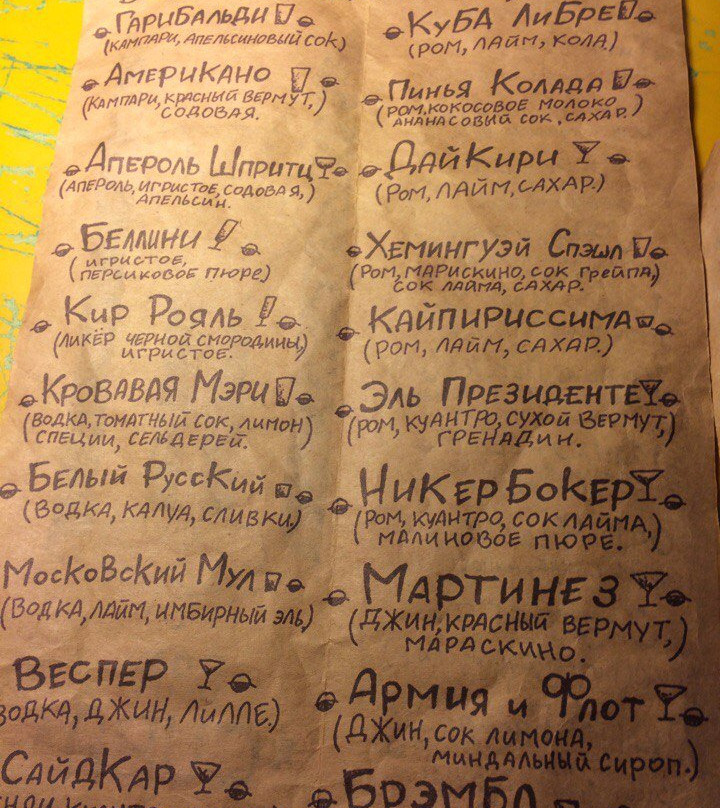 Гарибальди
(кампари, апельсиновый сок)
Американо
(кампари, красный вермут,)
содовая.
Апероль Шпритц
(апероль, игристое, содовая,)
апельсин.
Беллини
(игристое,
персиковое пюре)
Кир Рояль
(ликёр черной смородины,)
игристое.
Кровавая Мэри
(водка, томатный сок, лимон)
специи, сельдерей.
Белый Русский
(водка, калуа, сливки,)
Московский Мул
(водка, лайм, имбирный эль)
Веспер
водка, джин, лилле.)
Сайдкар
Куба Либре
(ром, лайм, кола)
Пинья Колада
(ром, кокосовое молоко
ананасовый сок, сахар.)
Дайкири
(ром, лайм, сахар.)
Хемингуэй Спэшл
(ром, марискино, сок грейпа,)
сок лайма, сахар.
Кайпириссима
(ром, лайм, сахар.)
Эль Президенте
(ром, куантро, сухой вермут,)
гренадин.
Никербокер
(ром, куантро, сок лайма,)
малиновое пюре.
Мартинез
(джин, красный вермут,)
мараскино.
Армия и Флот
(джин, сок лимона,
миндальный сироп.)
Брэмбл